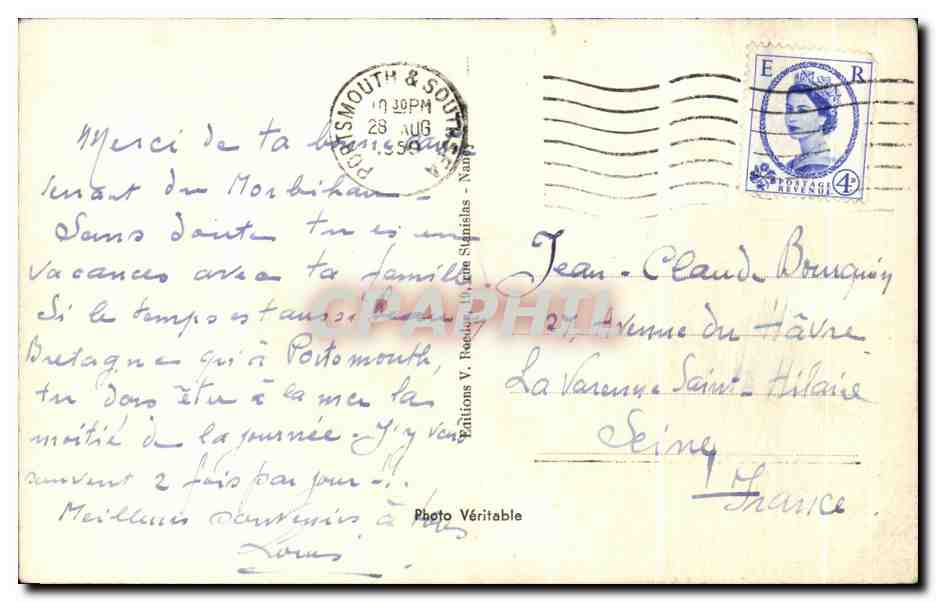 Merci de ta bonne carte
venant du Morbihan -
Sans doute tu es en
vacances avec ta famille
Si le temps est aussi beau en
Bretagne qu'à Portsmouth,
tu dois être à la mer la
moitié de la journée - J'y vais
souvent 2 fois par jour - !
Meilleurs souvenirs à tous
Louis
PORTSMOUTH & SOUTHSEA
30 PM
28 AUG
Editions V. Roeder, 19, rue Stanislas - Nancy
Photo Véritable
E R
POSTAGE
REVENUE
4D
Jean-Claude Bourquin
27, Avenue du Hâvre
La Varenne Saint-Hilaire
Seine
France
CPAPHIL